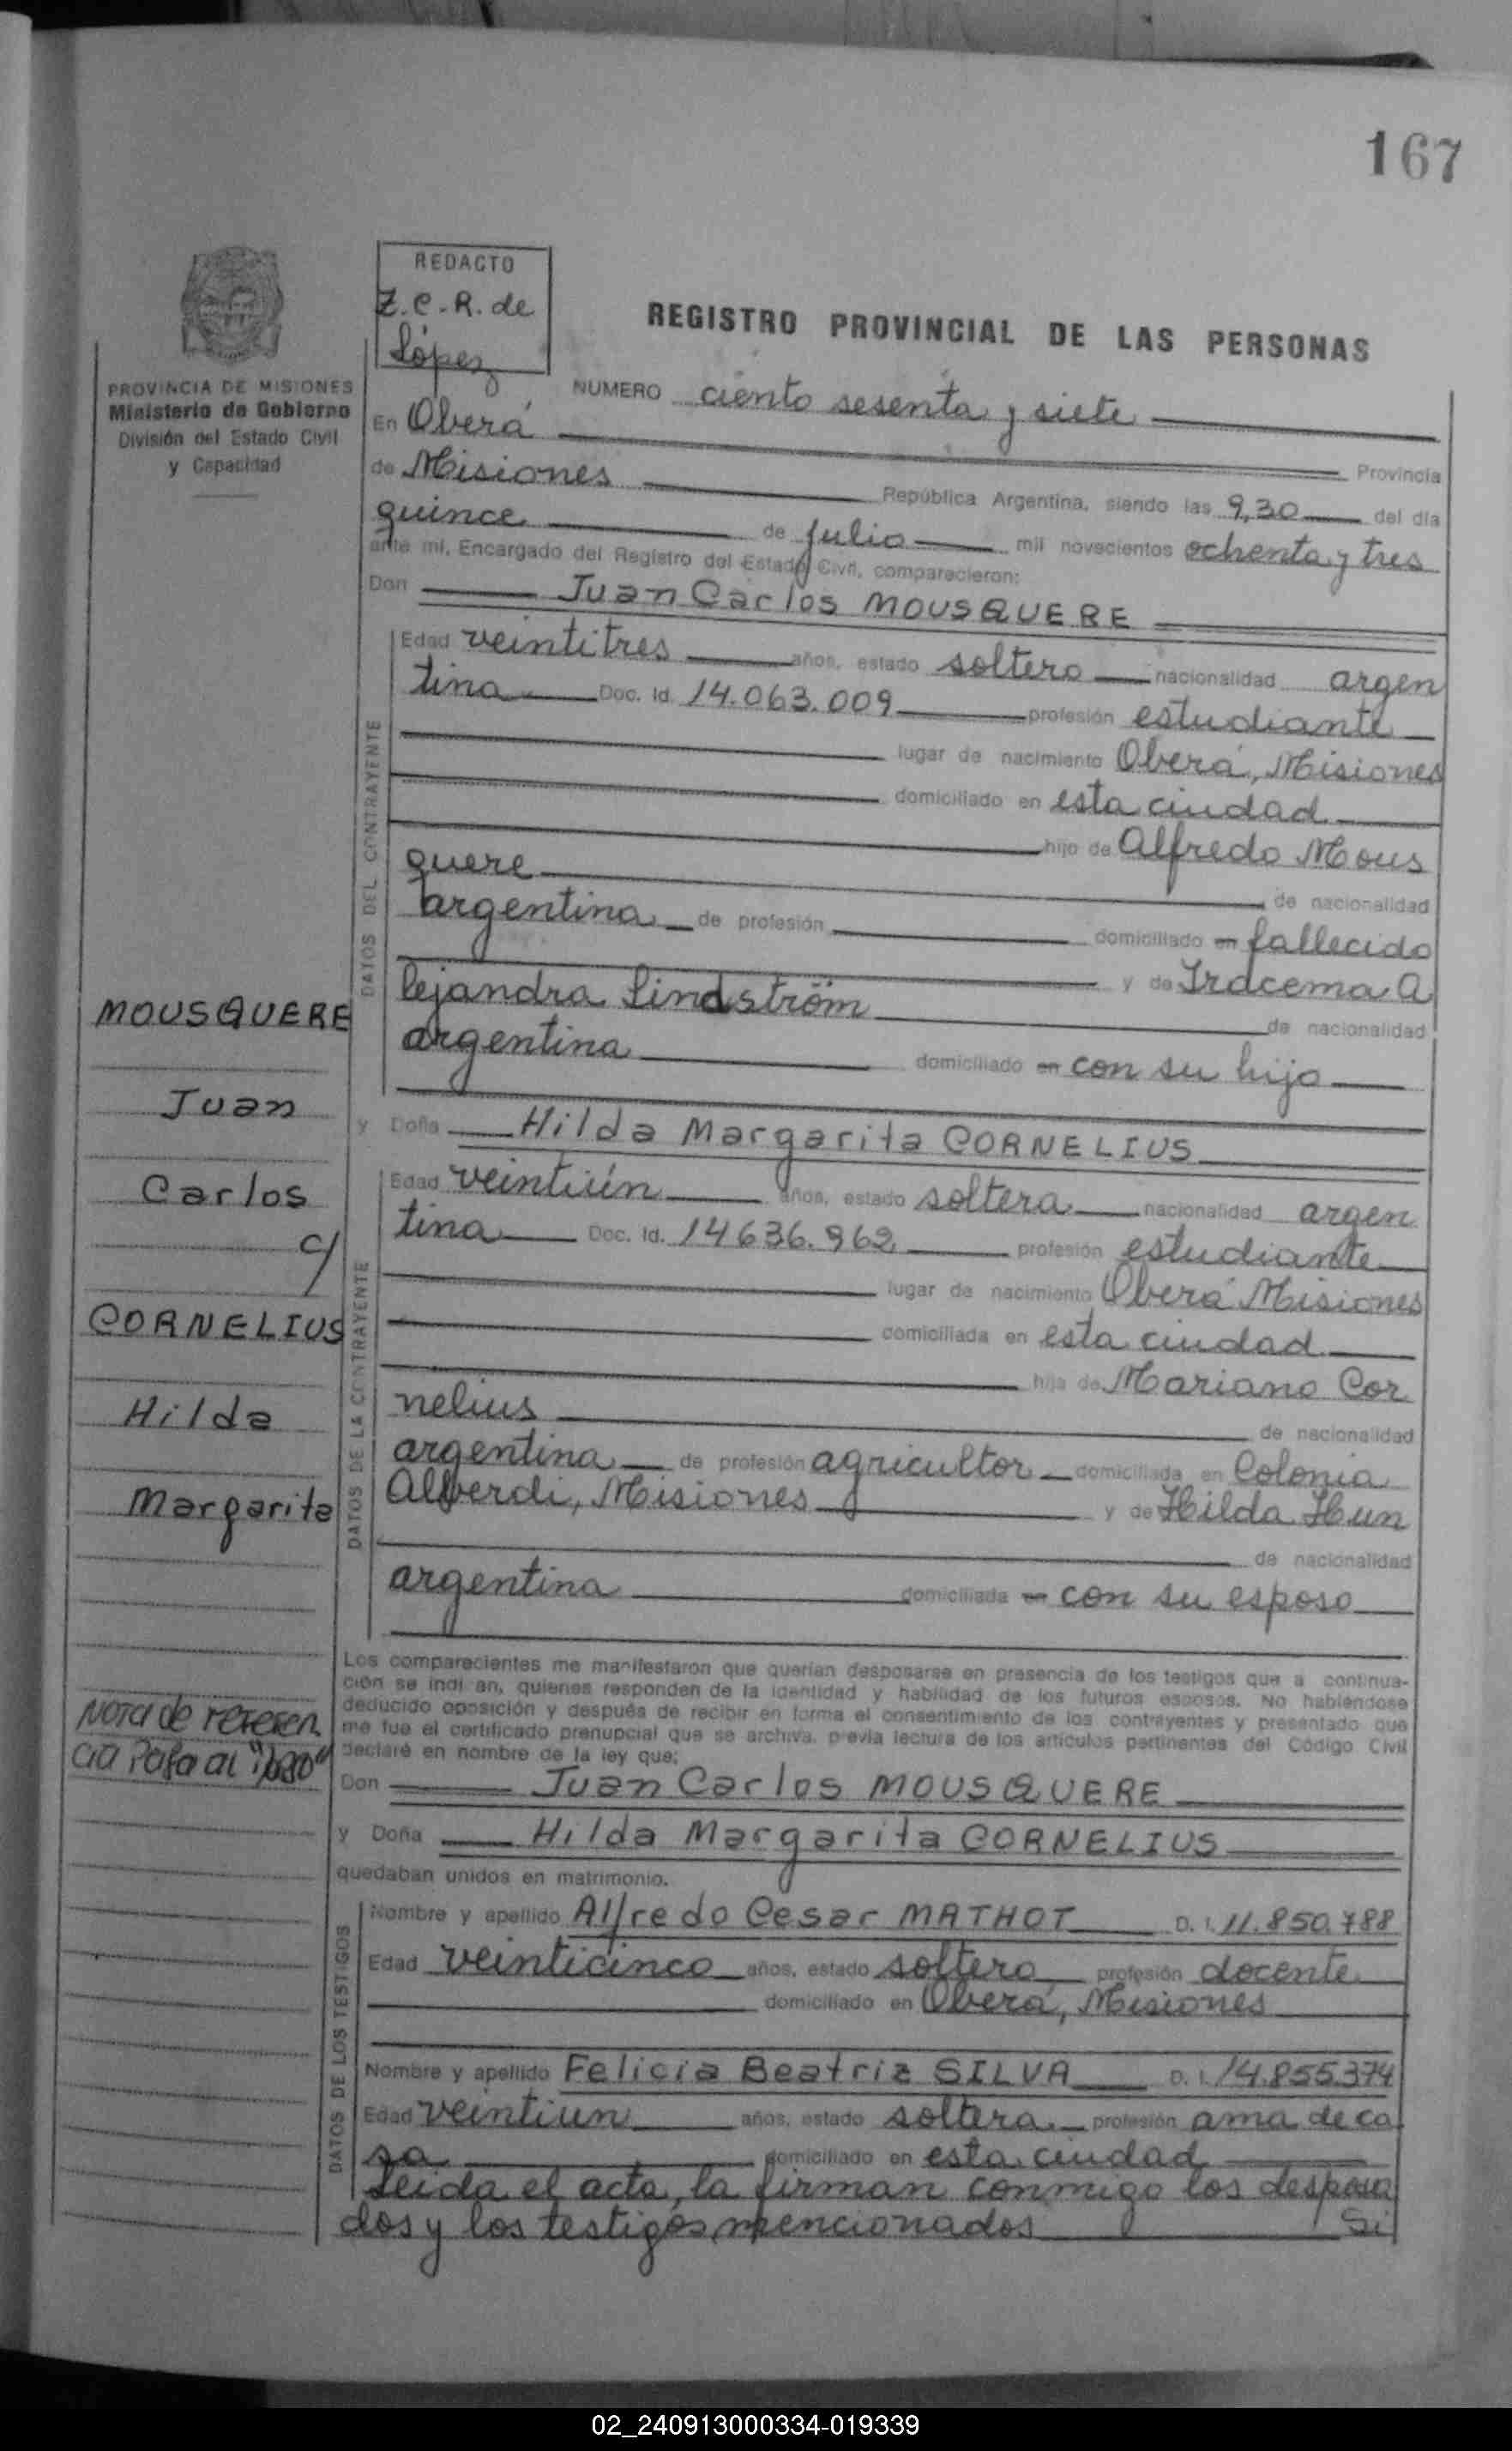 167
REDACTO
Z.C.R. de
López
REGISTRO PROVINCIAL DE LAS PERSONAS
PROVINCIA DE MISIONES
Ministerio de Gobierno
División del Estado Civil
y Capacidad
NUMERO ciento sesenta y siete
En Oberá Provincia
de Misiones República Argentina, siendo las 9,30 del día
quince de julio mil novecientos ochenta y tres
ante mí, Encargado del Registro del Estado Civil, comparecieron:
Don Juan Carlos MOUSQUERE
DATOS DEL CONTRAYENTE
Edad veintitres años, estado soltero nacionalidad argen
tina Doc. Id. 14.063.009 profesión estudiante
lugar de nacimiento Oberá, Misiones
domiciliado en esta ciudad
hijo de Alfredo Mous
quere de nacionalidad
argentina de profesión domiciliado en fallecido
y de Iracema A
lejandra Lindström de nacionalidad
argentina domiciliado en con su hijo
y Doña Hilda Margarita CORNELIUS
DATOS DE LA CONTRAYENTE
Edad veintiún años, estado soltera nacionalidad argen
tina Doc. Id. 14636.962 profesión estudiante
lugar de nacimiento Oberá Misiones
domiciliada en esta ciudad
hija de Mariano Cor
nelius de nacionalidad
argentina de profesión agricultor domiciliada en Colonia
Alberdi, Misiones y de Hilda Hun
de nacionalidad
argentina domiciliada en con su esposo
MOUSQUERE
Juan
Carlos
c/
CORNELIUS
Hilda
Margarita
Nota de referen
cia Pasa al
Los comparecientes me manifestaron que querían desposarse en presencia de los testigos que a continua-
ción se indi an, quienes responden de la identidad y habilidad de los futuros esposos. No habiéndose
deducido oposición y después de recibir en forma el consentimiento de los contrayentes y presentado que
me fue el certificado prenupcial que se archiva, previa lectura de los artículos pertinentes del Código Civil
declaré en nombre de la ley que:
Don Juan Carlos MOUSQUERE
y Doña Hilda Margarita CORNELIUS
quedaban unidos en matrimonio.
DATOS DE LOS TESTIGOS
Nombre y apellido Alfredo Cesar MATHOT D. I. 11.850.788
Edad veinticinco años, estado soltero profesión docente
domiciliado en Oberá, Misiones
Nombre y apellido Felicia Beatriz SILVA D. I. 14.855.374
Edad veintiun años, estado soltera profesión ama de ca
sa domiciliado en esta ciudad
Leida el acta, la firman conmigo los desposa
dos y los testigos mencionados Si
02_240913000334-019339